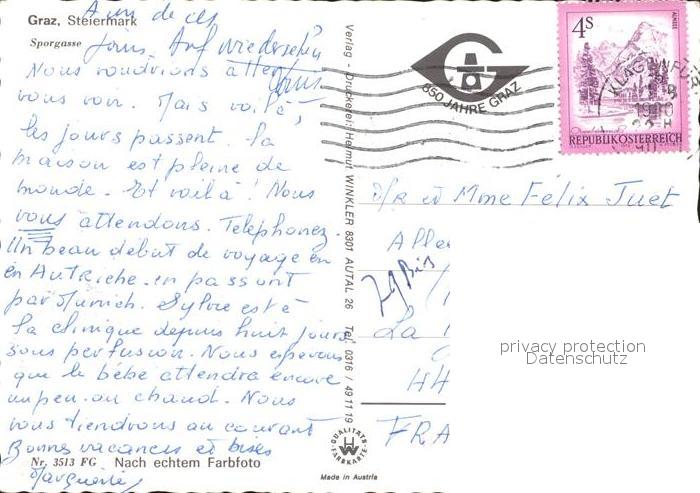 A un de ces
Graz, Steiermark
Sporgasse
jours. Auf wiedersehn
Nous voudrions attendre
vous voir. Mais voilà,
les jours passent. La
maison est pleine de
monde. Et voilà! Nous
vous attendons. Telephonez.
Un beau début de voyage en
en Autriche. en passant
par Munich. Sylvie est à
la clinique depuis huit jours
sous perfusion. Nous esperons
que le bébé attendra encore
un peu au chaud. Nous
vous tiendrons au courant
Bonnes vacances et bises
Nr. 3513 FG Nach echtem Farbfoto
Marguerite
Verlag - Druckerei: Helmut WINKLER 8301 AUTAL 26 Tel. 0316 / 49 11 19
QUALITÄTS FARBKARTE
Made in Austria
850 JAHRE GRAZ
4S
ALMSEE
REPUBLIK ÖSTERREICH
KLAGENFURT
et Mme Félix Juet
Alle
La
FRA
privacy protection
Datenschutz